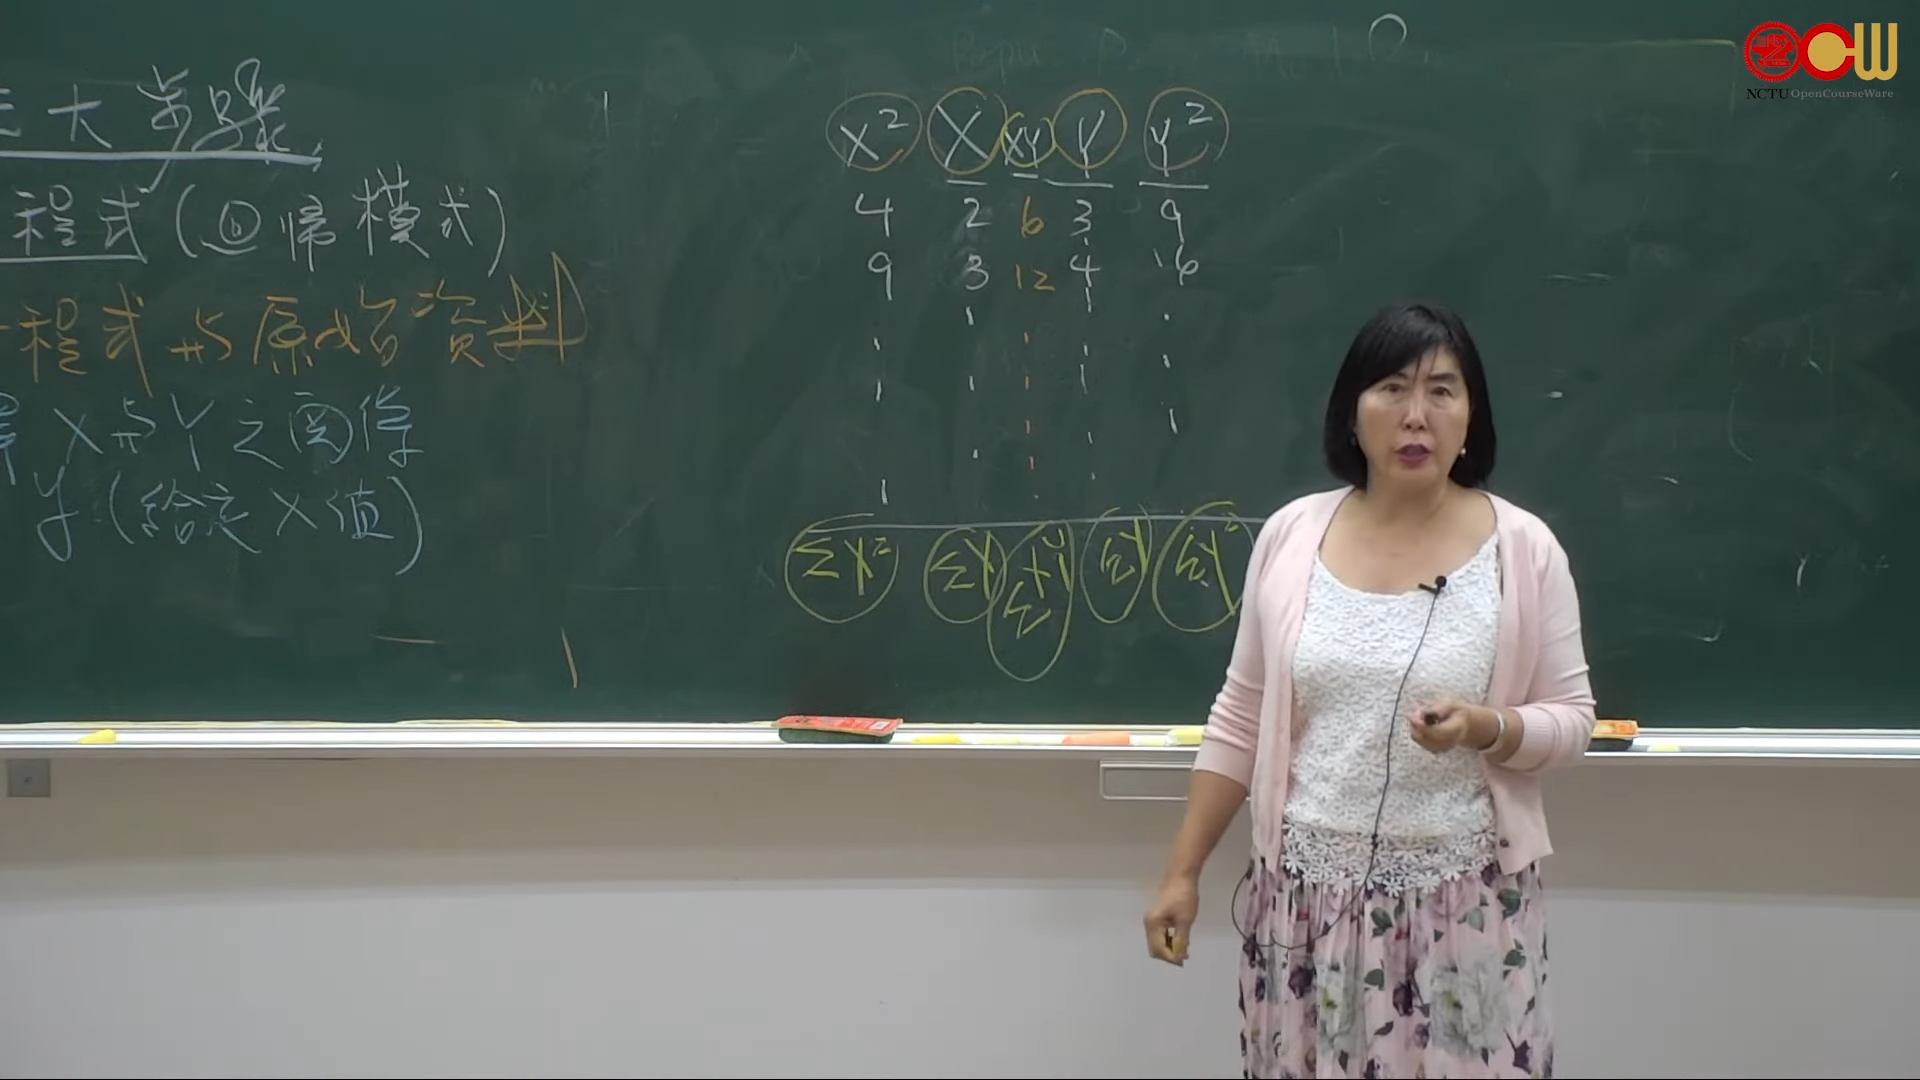 三大步驟
程式(回帰模式)
程式与原始資料
X与Y之図係
y(給定X值)
X² X XY Y Y²
4 2 6 3 9
9 3 12 4 16
ΣX² ΣX ΣXY ΣY ΣY²
NCTU OpenCourseWare